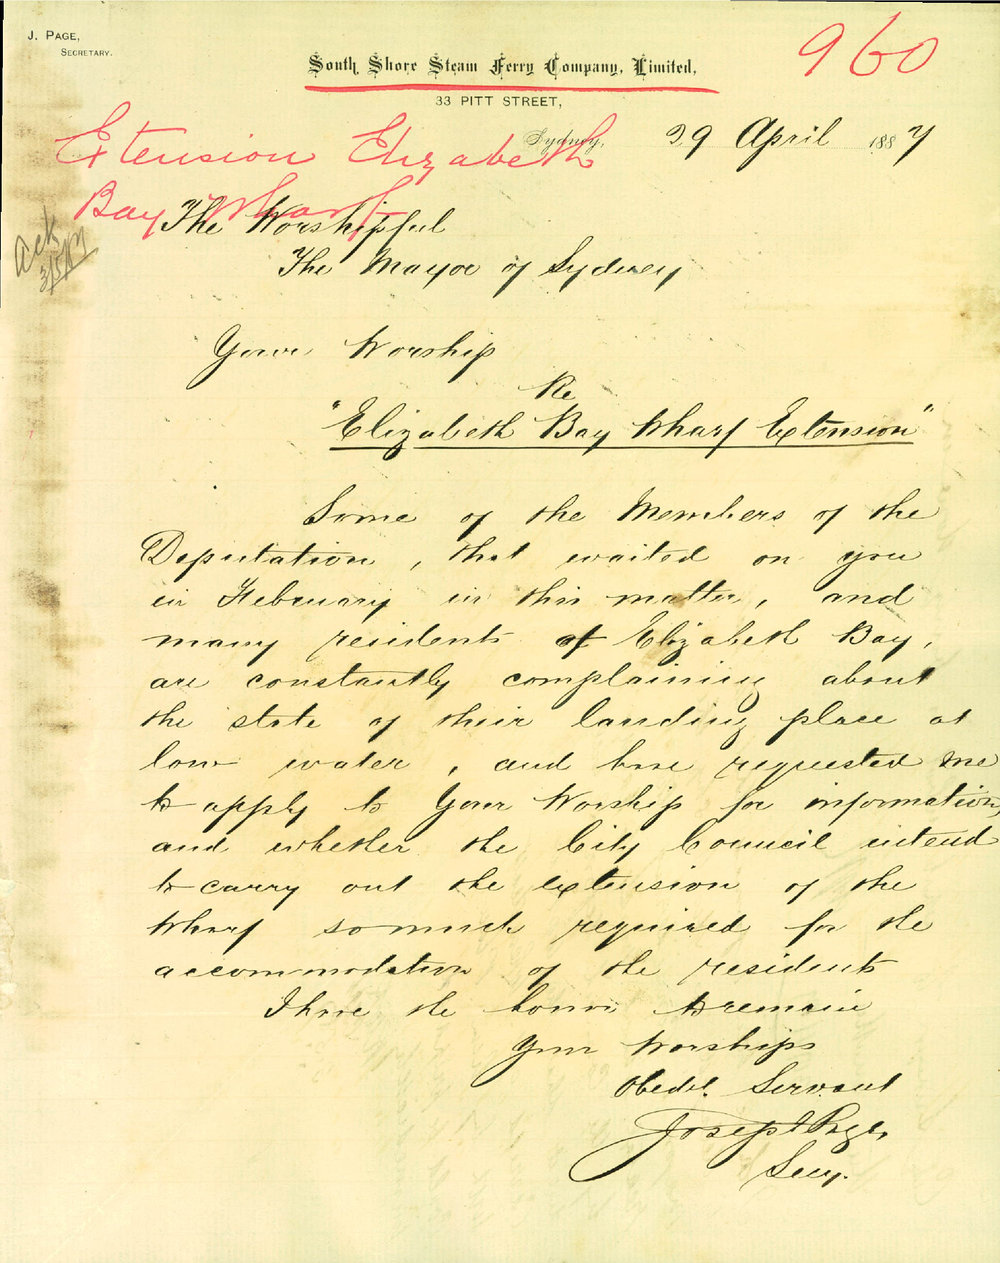 J. PAGE,
SECRETARY.
960
South Shore Steam Ferry Company, Limited,
33 PITT STREET,
Sydney, 29 April 1887
Extension Elizabeth
Bay Wharf
Ack
3/5/87
The Worshipful
The Mayor of Sydney
Your Worship
Re
"Elizabeth Bay Wharf Extension"
Some of the Members of the
Deputation, that waited on you
in February in this matter, and
many residents of Elizabeth Bay,
are constantly complaining about
the state of their landing place at
low water, and have requested me
to apply to Your Worship for information,
and whether the City Council intend
to carry out the extension of the
Wharf so much required for the
accommodation of the residents
I have the honor to remain
Your Worships
Obedt. Servant
Joseph Page
Secy.